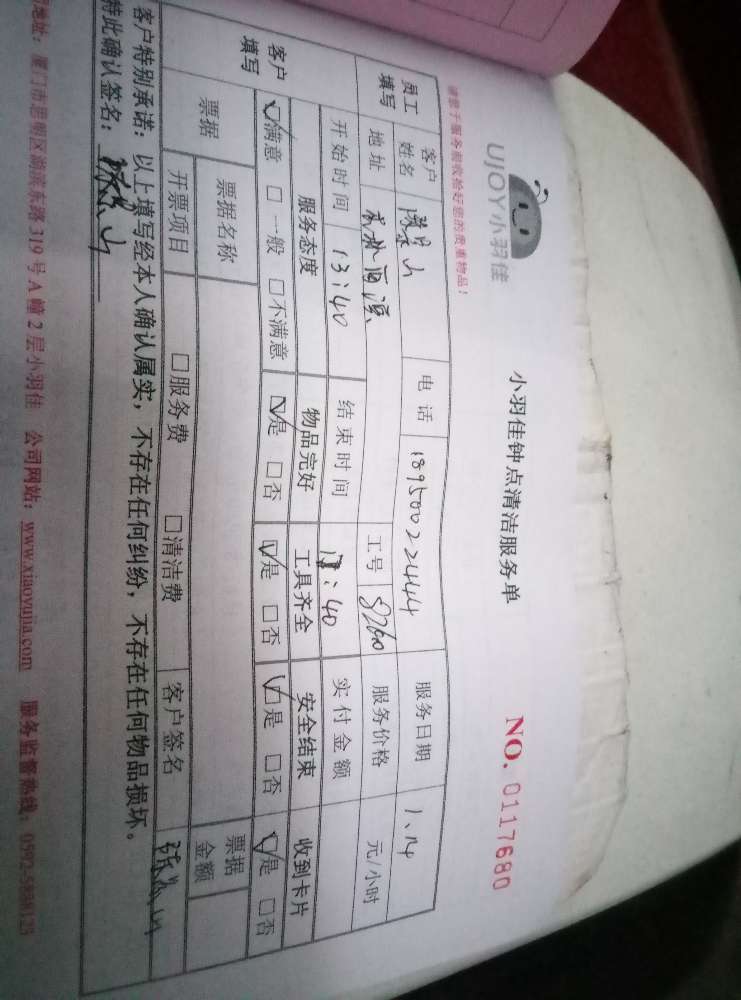 UJOY小羽佳
小羽佳钟点清洁服务单
NO. 0117680
请您于服务前收拾好您的贵重物品！
员工填写 客户姓名 电话 18950022444 服务日期 1、14
地址 工号 服务价格 元/小时
开始时间 13:40 结束时间 :40 实付金额
客户填写 服务态度 物品完好 工具齐全 安全结束 收到卡片
☑满意 □一般 □不满意 ☑是 □否 ☑是 □否 ☑是 □否 ☑是 □否
票据 票据名称 票据金额
开票项目 □服务费 □清洁费 客户签名
客户特别承诺：以上填写经本人确认属实，不存在任何纠纷，不存在任何物品损坏。
特此确认签名：
地址：厦门市思明区湖滨东路319号A幢2层小羽佳 公司网站：www.xiaoyujia.com 服务监督热线：0592-5888125